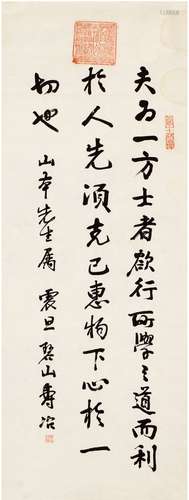 夫为一方士者欲行所學之道而利
於人先須克己惠物下心於一
切也
山本先生属 震旦 启山 壽冶